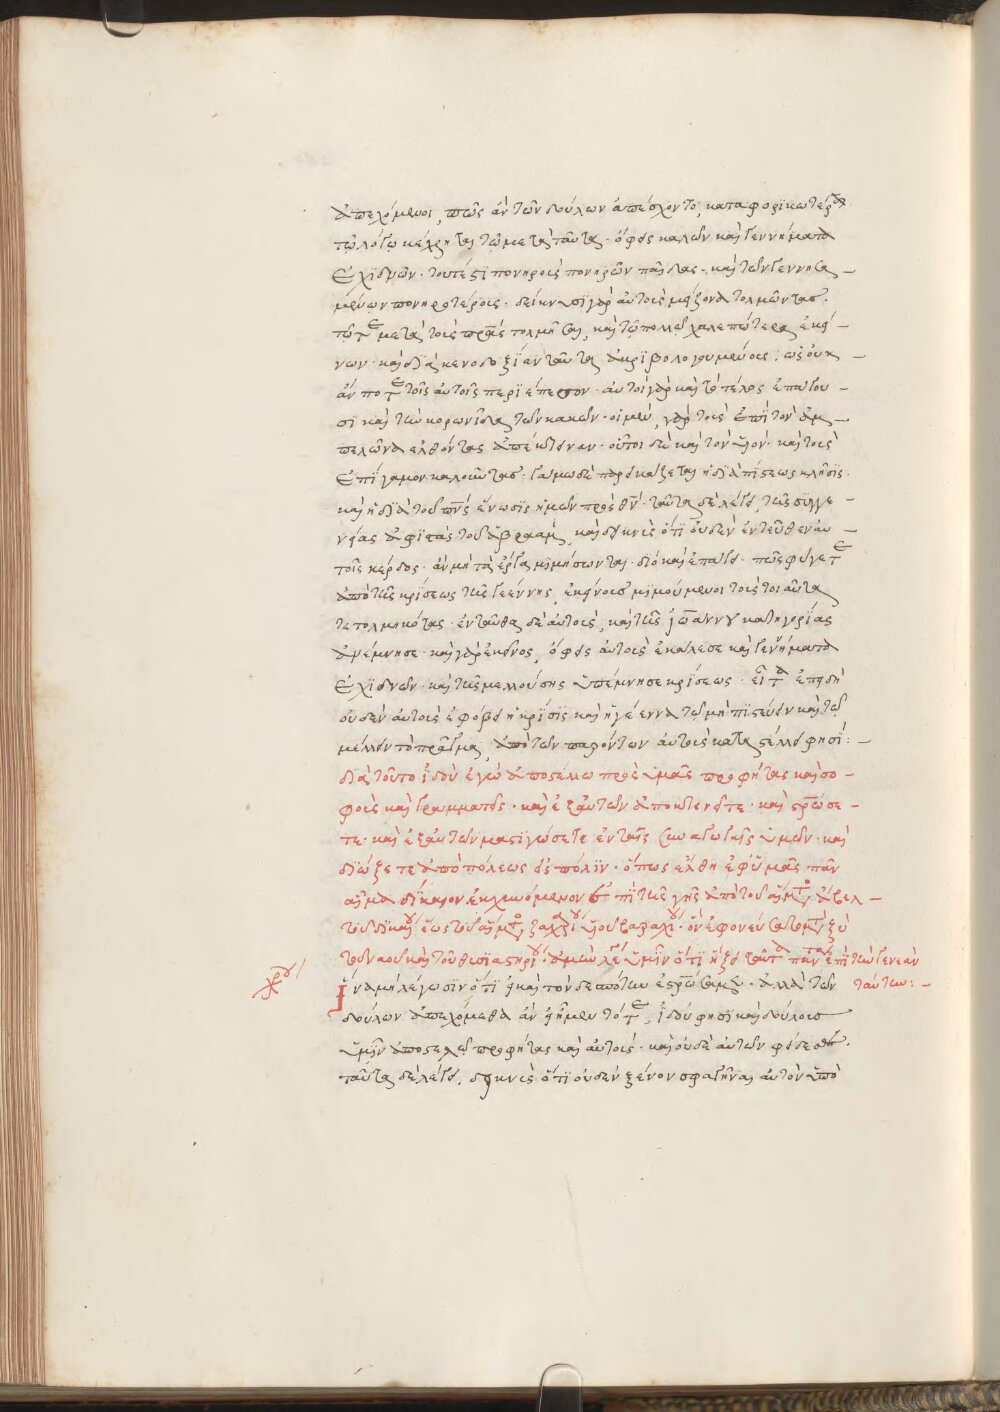 ἀπεχόμενοι, πῶς ἂν τῶν δούλων ἀπέσχοντο, καταφορικωτέρῳ
τῷ λόγῳ κέχρηται τῷ μετὰ ταῦτα· ὄφεις καλῶν καὶ γεννήματα
ἐχιδνῶν· τουτέστι πονηροὺς πονηρῶν παῖδας· καὶ τῶν γεννησα –
μένων πονηροτέρους· δείκνυσι γὰρ αὐτοὺς μείζονα τολμῶντας·
τῷ τε μετὰ τοὺς πρας τολμῆσαι, καὶ τῷ πολλῷ χαλεπώτερα ἐκεί –
νων· καὶ διὰ κενοδοξίαν ταῦτα ἀκριβολογουμένους· ὡς οὐκ –
ἄν ποτε τοῖς αὐτοῖς περιέπεσον· αὐτοὶ γὰρ καὶ τὸ τέλος ἐπάγου –
σι καὶ τὴν κορωνίδα τῶν κακῶν· οἱ μὲν γὰρ τοὺς ἐπὶ τὸν ἀμ –
πελῶνα ἐλθόντας ἀπέκτειναν· οὗτοι δὲ καὶ τὸν υἱόν· καὶ τοὺς
ἐπὶ γάμον καλοῦντας· γάμω δὲ παρεικάζεται ἡ διὰ πίστεως κλῆσις·
καὶ ἡ διὰ τοῦ πνς ἕνωσις ἡμῶν πρὸς θν· ταῦτα δὲ λέγει, τῆς συγγε –
νείας ἀφιστὰς τοῦ ἀβραὰμ, καὶ δεικνὺς ὅτι οὐδὲν ἐντεῦθεν αὐ –
τοῖς κέρδος· ἂν μὴ τὰ ἔργα μιμήσωνται· διὸ καὶ ἐπάγει· πῶς φύγετε
ἀπὸ τῆς κρίσεως τῆς γεέννης, ἐκείνους μιμούμενοι τοὺς τοιαῦτα
τετολμηκότας· ἐνταῦθα δὲ αὐτοὺς, καὶ τῆς ἰωάννου κατηγορίας
ἀνέμνησε· καὶ γὰρ ἐκεῖνος, ὄφεις αὐτοὺς ἐκάλεσε καὶ γεννήματα
ἐχιδνῶν· καὶ τῆς μελλούσης ὑπέμνησε κρίσεως· εἶτα ἐπειδὴ
οὐδὲν αὐτοὺς ἐφόβει ἡ κρίσις καὶ ἡ γέεννα τῷ μὴ πιστεύειν καὶ τῷ
μέλλειν τὸ πρᾶγμα, ἀπὸ τῶν παρόντων αὐτοὺς καταστέλλει φησί: –
διὰ τοῦτο ἰδοὺ ἐγὼ ἀποστέλλω πρὸς ὑμᾶς προφήτας καὶ σο –
φοὺς καὶ γραμματεῖς· καὶ ἐξ αὐτῶν ἀποκτενεῖτε· καὶ σρώσε –
τε· καὶ ἐξ αὐτῶν μαστιγώσετε ἐν ταῖς συναγωγαῖς ὑμῶν· καὶ
διώξετε ἀπὸ πόλεως εἰς πόλιν· ὅπως ἔλθη ἐφ' ὑμᾶς πᾶν
αἷμα δίκαιον ἐκχυνόμενον ἐπὶ τῆς γῆς ἀπὸ τοῦ αἵματος ἄβελ –
τοῦ δικαίου ἕως τοῦ αἵματος ζαχαρίου υἱοῦ βαραχίου· ὃν ἐφονεύσατε μεταξὺ
τοῦ ναοῦ καὶ τοῦ θυσιαστηρίου· ἀμὴν λέγω ὑμῖν ὅτι ἥξει ταῦτα πάντα ἐπὶ τὴν γενεὰν
ταύτην: –
ἵνα μὴ λέγωσιν ὅτι εἰ καὶ τὸν δεσπότην ἐσρώσαμεν· ἀλλὰ τῶν
δούλων ἀπεχόμεθα ἂν εἰ ἦμεν τότε, ἰδού φησι καὶ δούλους
ὑμῖν ἀποστελῶ προφήτας καὶ αὐτούς· καὶ οὐδὲ αὐτῶν φείσεσθε·
ταῦτα δὲ λέγει, δεικνὺς ὅτι οὐδὲν ξένον σφαγῆναι αὐτὸν ὑπὸ